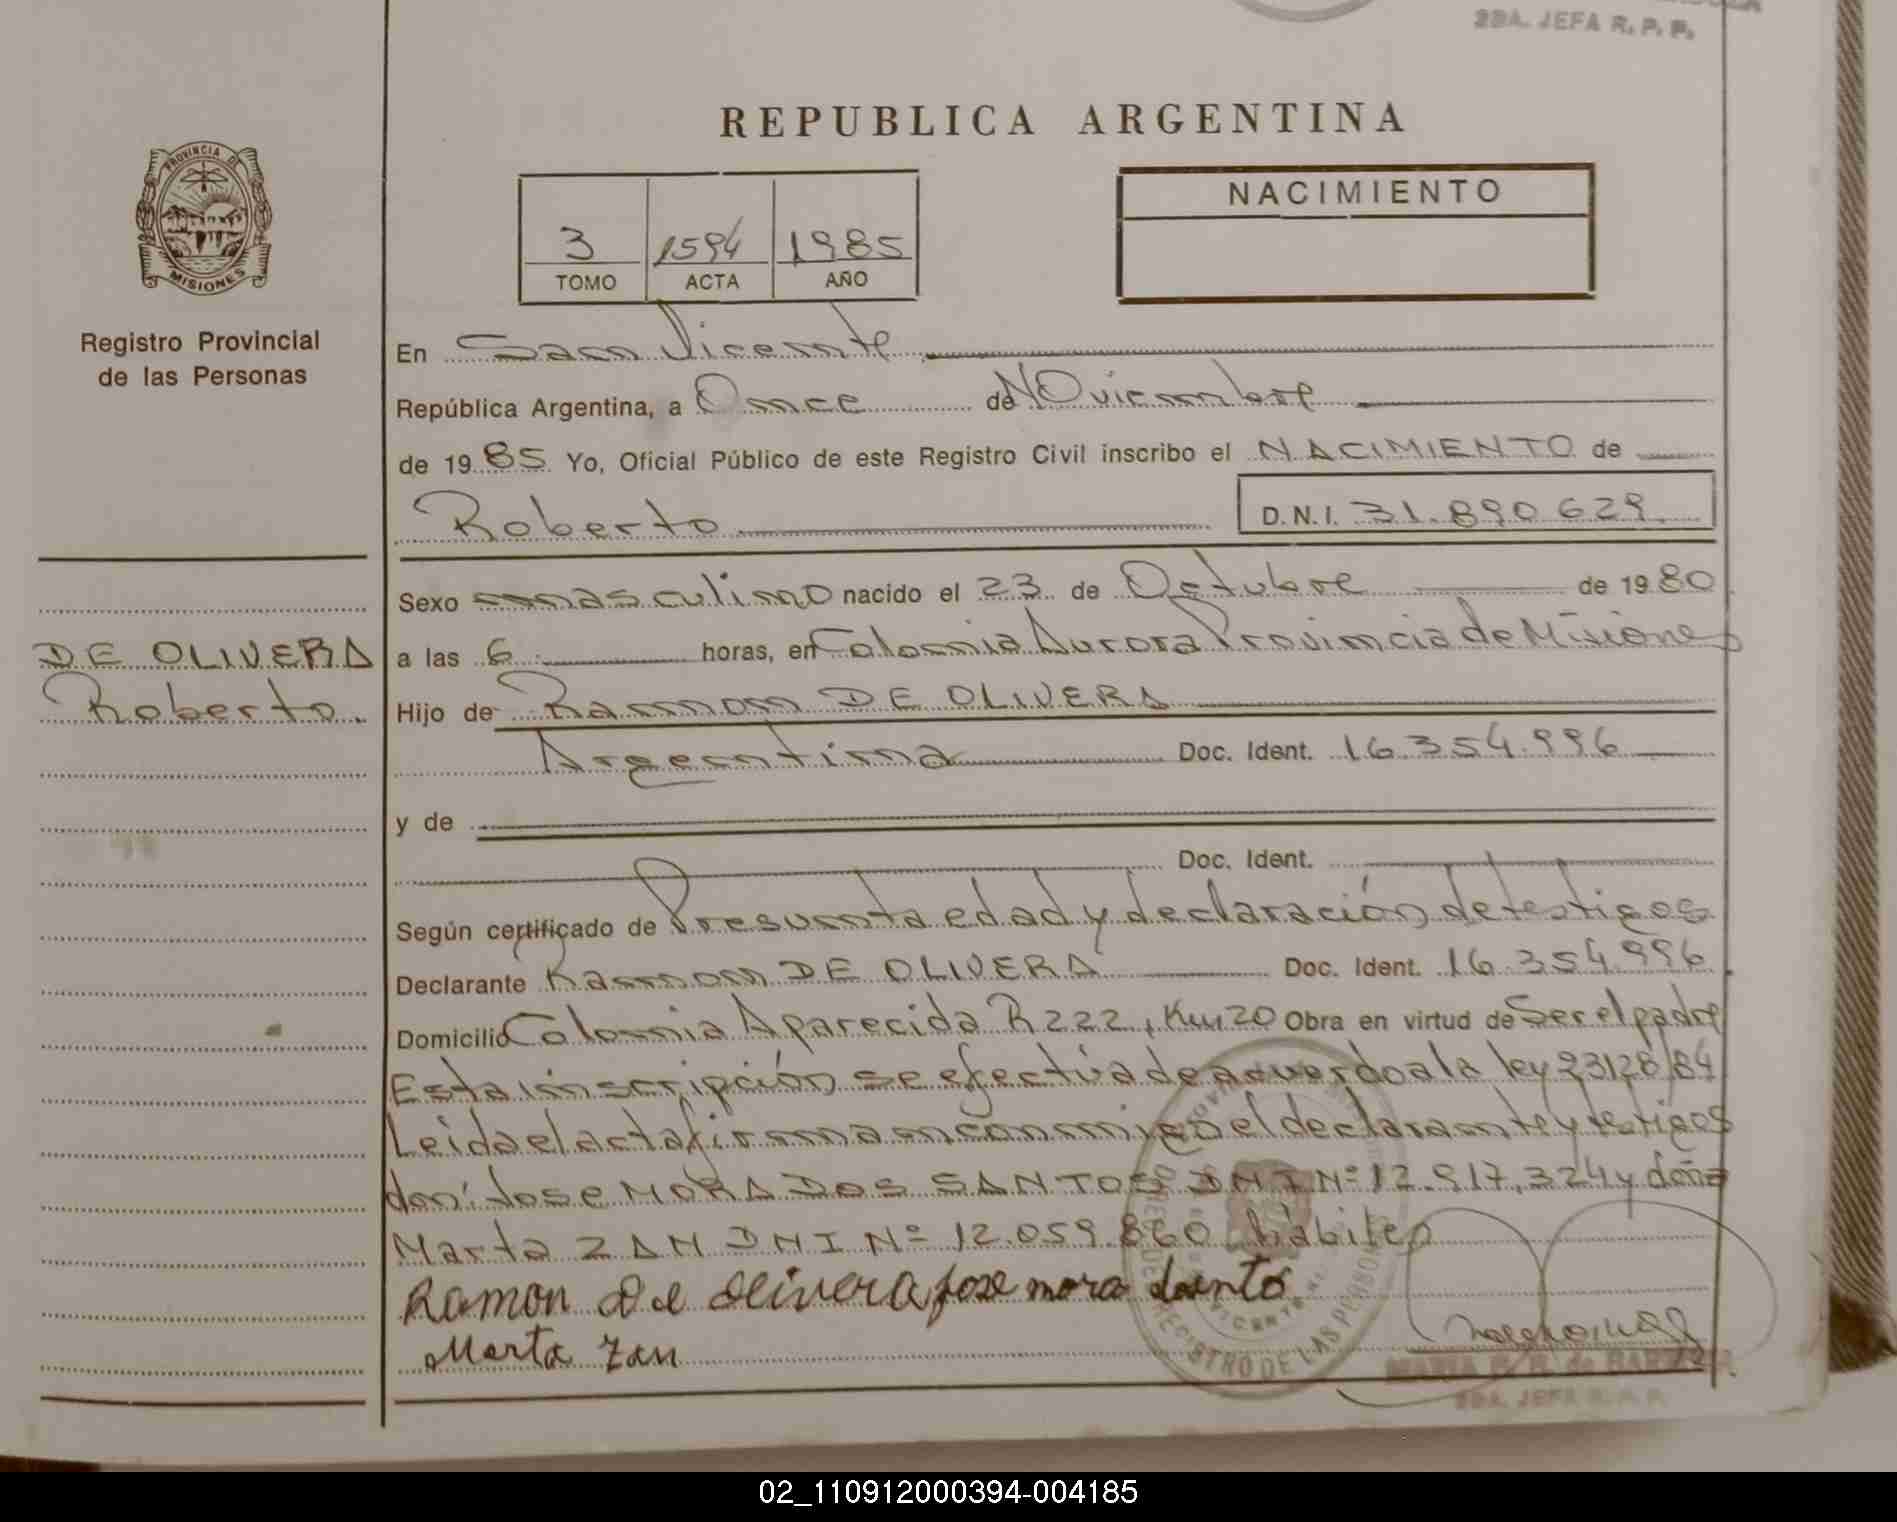 2DA. JEFA R. P. P.
REPUBLICA ARGENTINA
PROVINCIA DE
MISIONES
Registro Provincial
de las Personas
3 1594 1985
TOMO ACTA AÑO
NACIMIENTO
En San Vicente
República Argentina, a Once de NOviembre
de 1985 Yo, Oficial Público de este Registro Civil inscribo el NACIMIENTO de
Roberto D.N.I. 31.890.629
Sexo masculino nacido el 23 de Octubre de 1980
DE OLIVERA
Roberto.
a las 6 horas, en Colonia Aurora Provincia de Misiones
Hijo de Ramon DE OLIVERA
Argentina Doc. Ident. 16.354.996
y de
Doc. Ident.
Según certificado de Presunta edad y declaración de testigos
Declarante Ramon DE OLIVERA Doc. Ident. 16.354.996
Domicilio Colonia Aparecida R 222, Km 20 Obra en virtud de Ser el padre
Esta inscripción se efectúa de acuerdo a la ley 23128/84
Leida el acta firman conmigo el declarante y testigos
don: Jose MORA DOS SANTOS DNI Nº 12.917.324 y doña
Marta ZAN DNI Nº 12.059.860 hábiles
Ramon De Olivera Jose mora dosanto
Marta Zan
REGISTRO DE LAS PERSONAS
2DA. JEFA R. P. P.
02_110912000394-004185